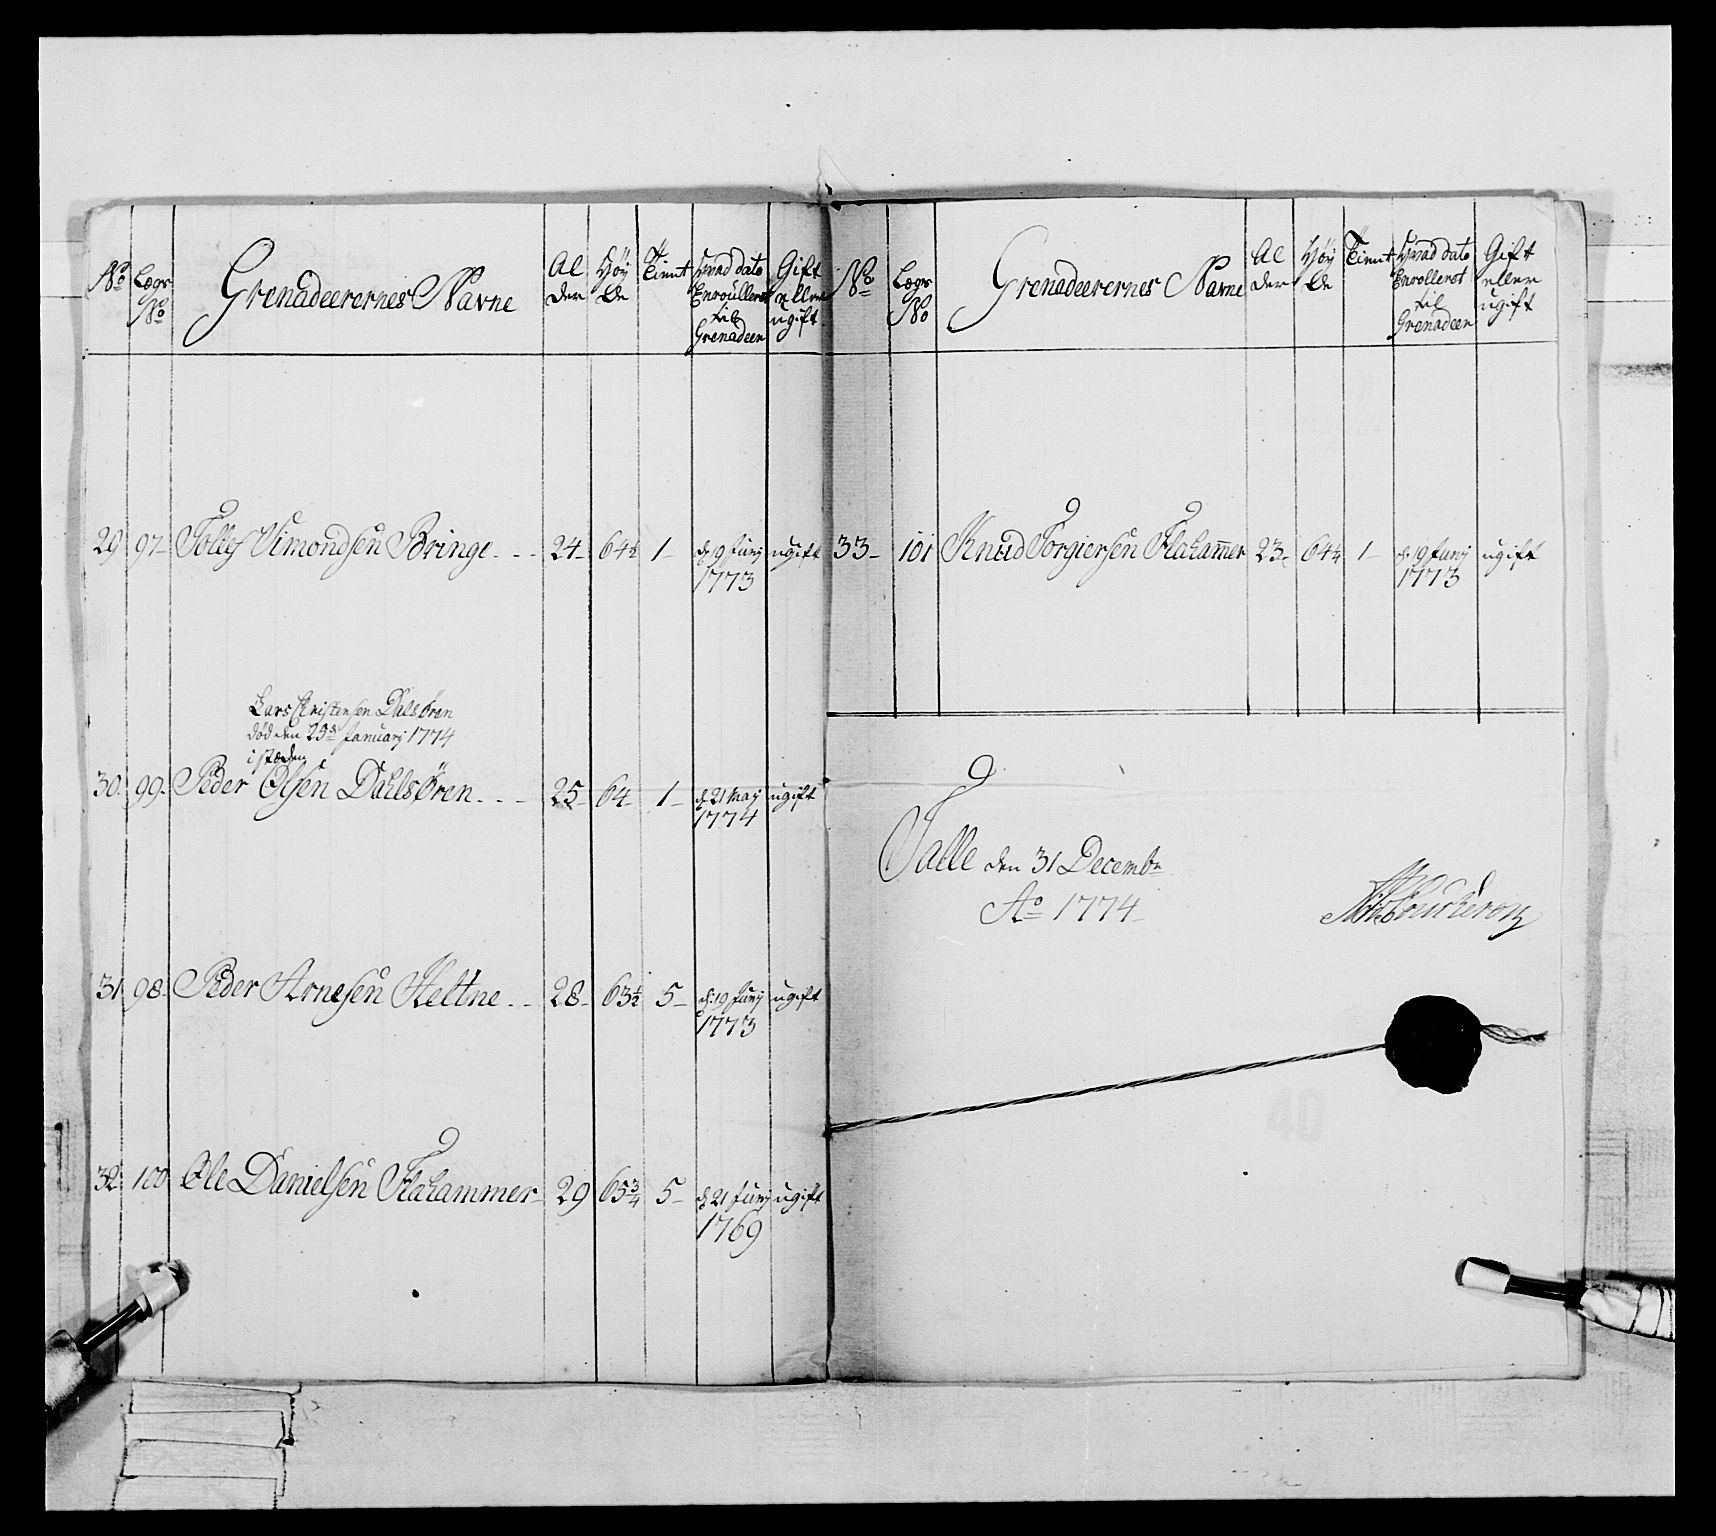 No
Lægs No
Grenadeerernes Navne
Al der
Höy de
Tient
Hvad dato Enroulleret til Grenadeer
Gift eller ugift
29 97 Tolles Simondsen Bringe 24 64½ 1 d. 19 Junj 1773 ugift
Lars Christensen Dalsören
död den 23de Januarj 1774
i stæden
30 99 Peder Olsen Dahlsören 25 64 1 d. 21 Maij 1774 ugift
31 98 Peder Arnesen Heltne 28 63½ 5 d: 19 Junj 1773 ugift
32 100 Ole Danielsen Flahammer 29 65¾ 5 d. 21 Junj 1769 ugift
No
Lægs No
Grenadeerernes Navne
Al der
Höy de
Tient
Hvad dato Enrolleret til Grenadeer
Gift eller ugift
33 101 Knud Torgiersen Flahammer 23 64¼ 1 d. 19 Junj 1773 ugift
Talle den 31 Decembr
Ao 1774
40